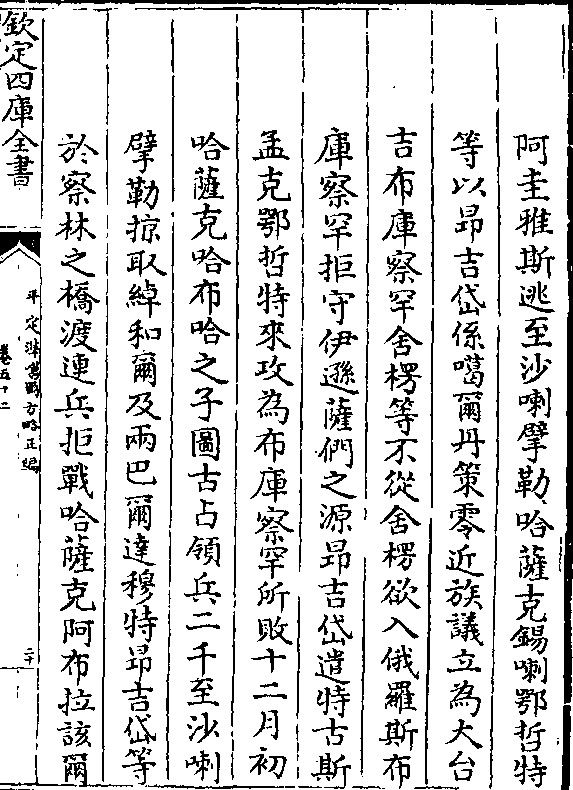 阿圭雅斯逃至沙喇擘勒哈薩克錫喇鄂哲特
等以昂吉岱係噶爾丹策零近族議立為大台
吉布庫察罕舍楞等不從舍楞欲入俄羅斯布
庫察罕拒守伊遜薩們之源昂吉岱遣特古斯
孟克鄂哲特來攻為布庫察罕所敗十二月初
哈薩克哈布哈之子圖古占領兵二千至沙喇
擘勒掠取綽和爾及兩巴爾達穆特昂吉岱等
於察林之橋渡連兵拒戰哈薩克阿布拉該爾
欽定四庫全書
平定準噶爾方略正編
卷五十二
二十